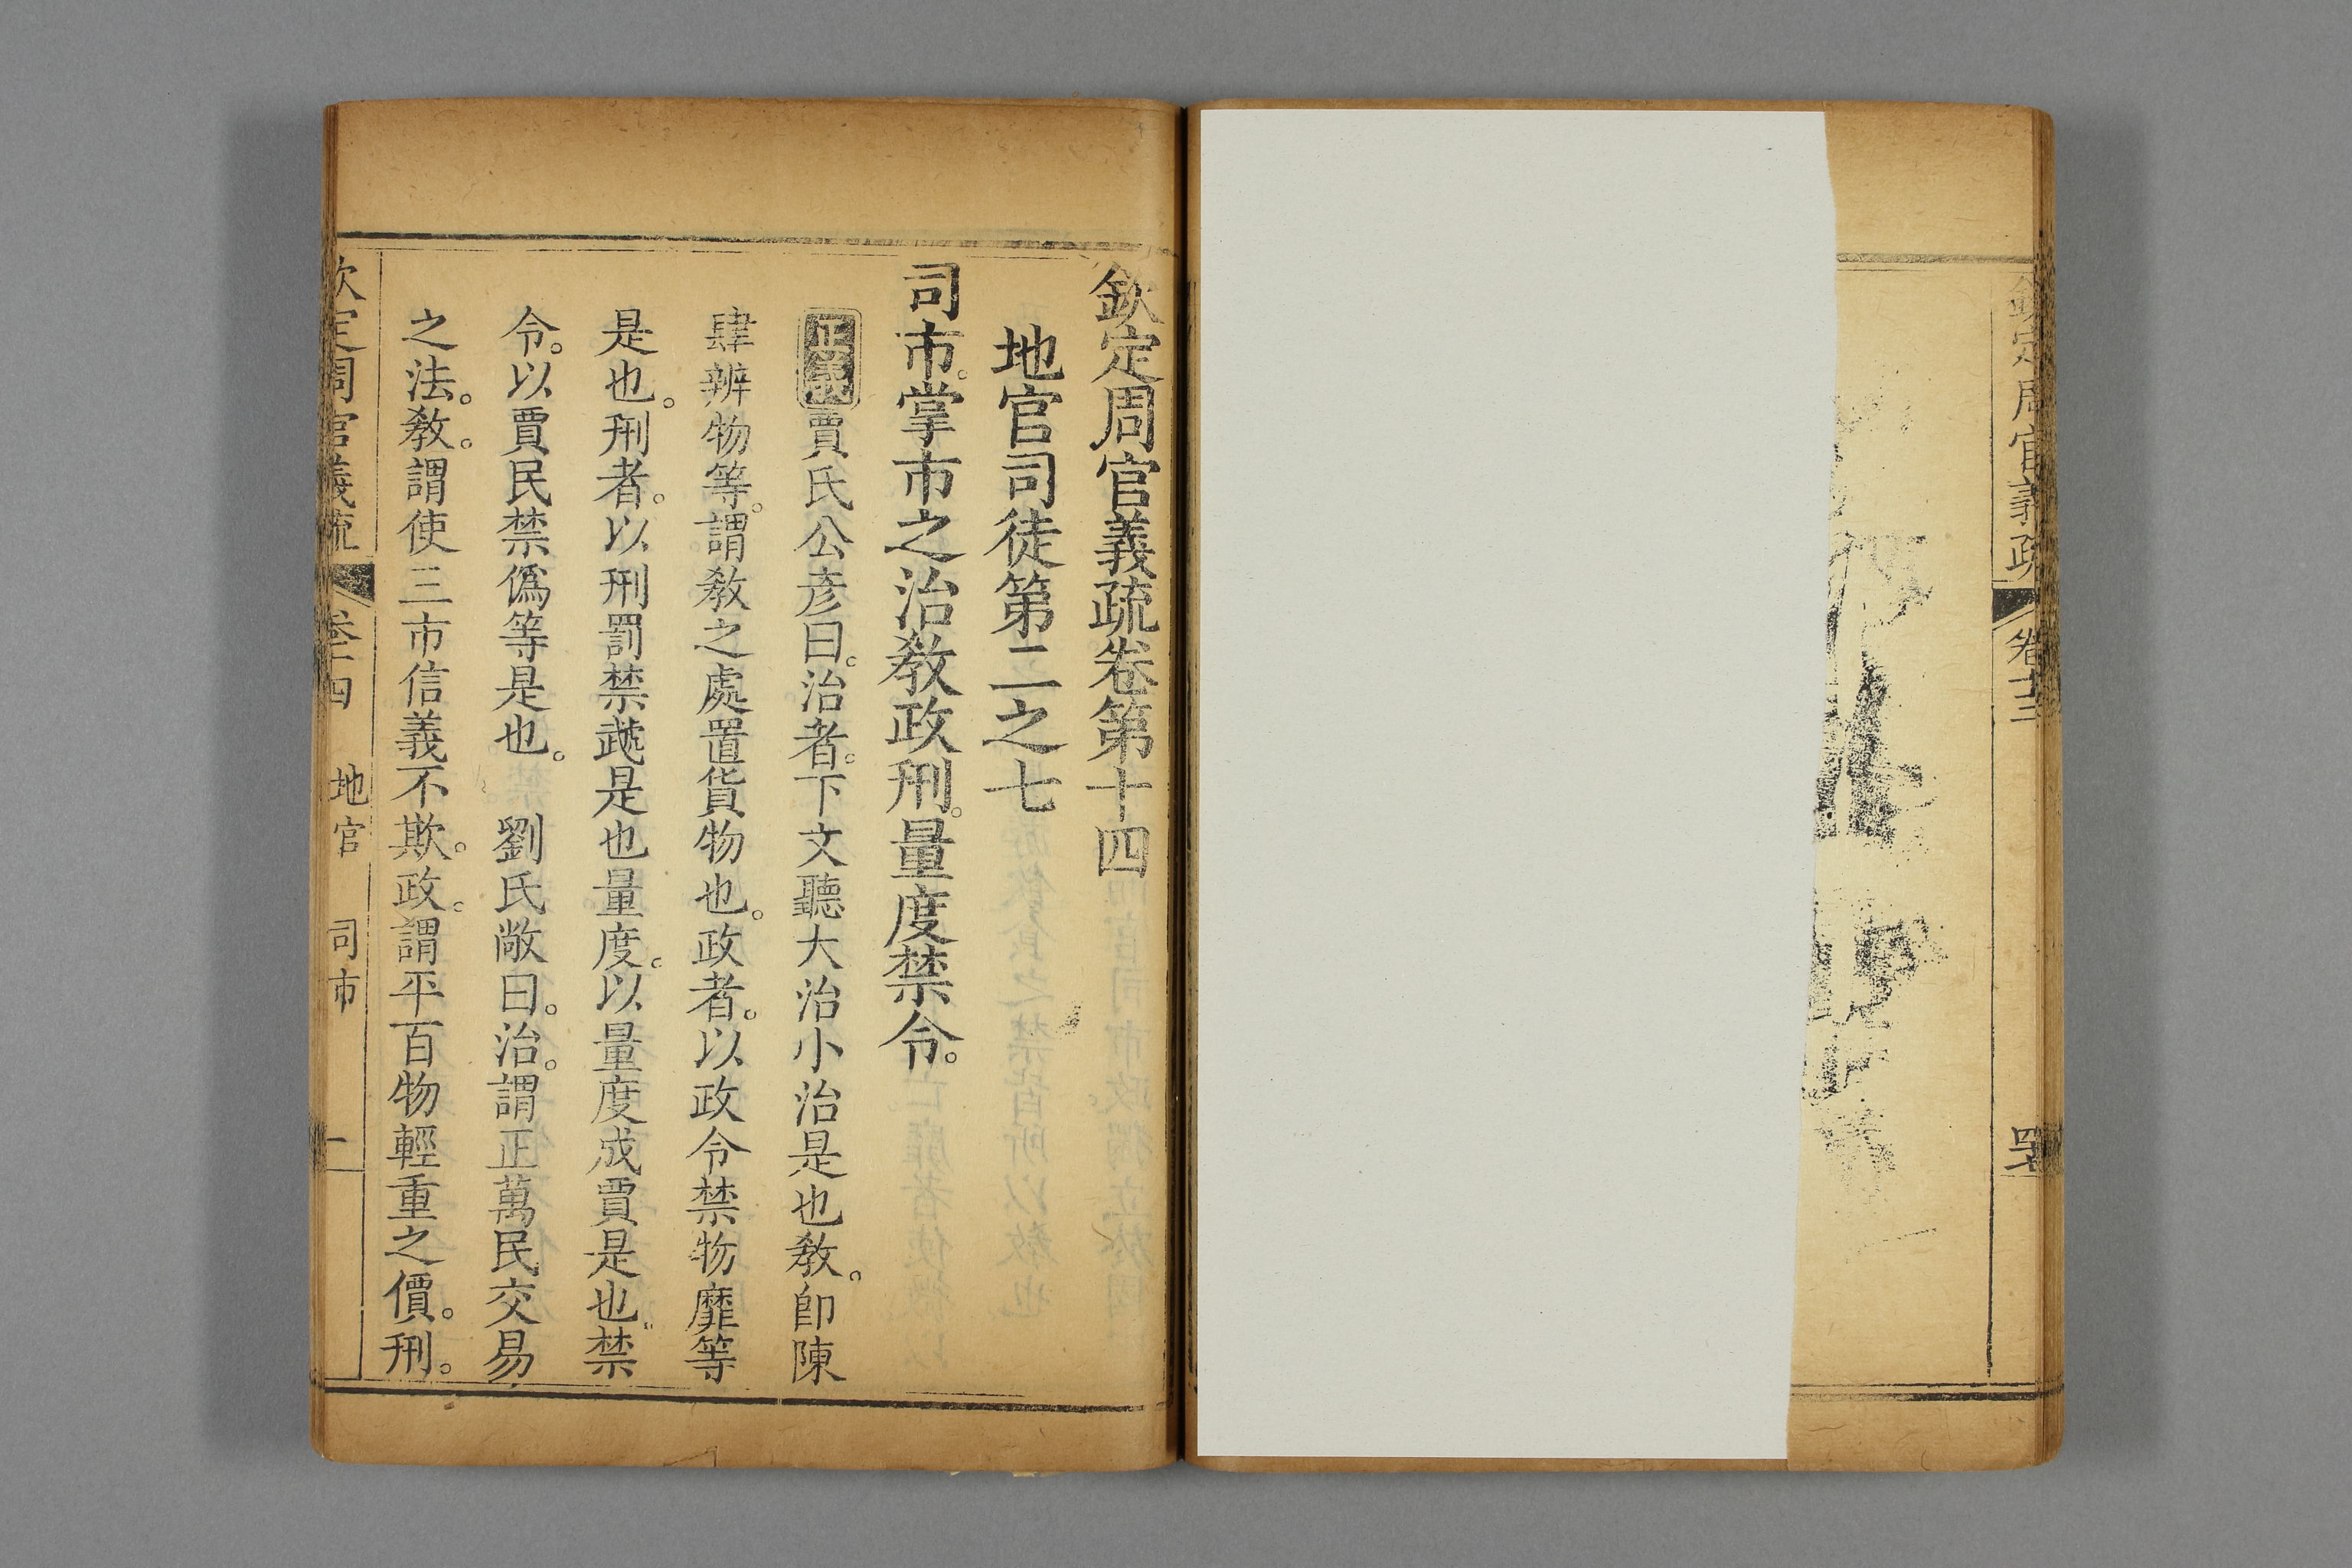 欽定周官義疏
卷十三
欽定周官義疏卷第十四
地官司徒第二之七
司市。掌市之治敎政刑。量度禁令。
正義賈氏公彥曰。治者。下文聽大治小治是也敎。卽陳
肆辨物等。謂敎之處置貨物也。政者。以政令禁物靡等
是也。刑者。以刑罰禁虣是也量度。以量度成賈是也。禁
令。以賈民禁僞等是也。 劉氏敞曰。治。謂正萬民交易
之法。敎。謂使三市信義不欺。政。謂平百物輕重之價。刑。
欽定周官義疏 卷十四 地官 司市 一